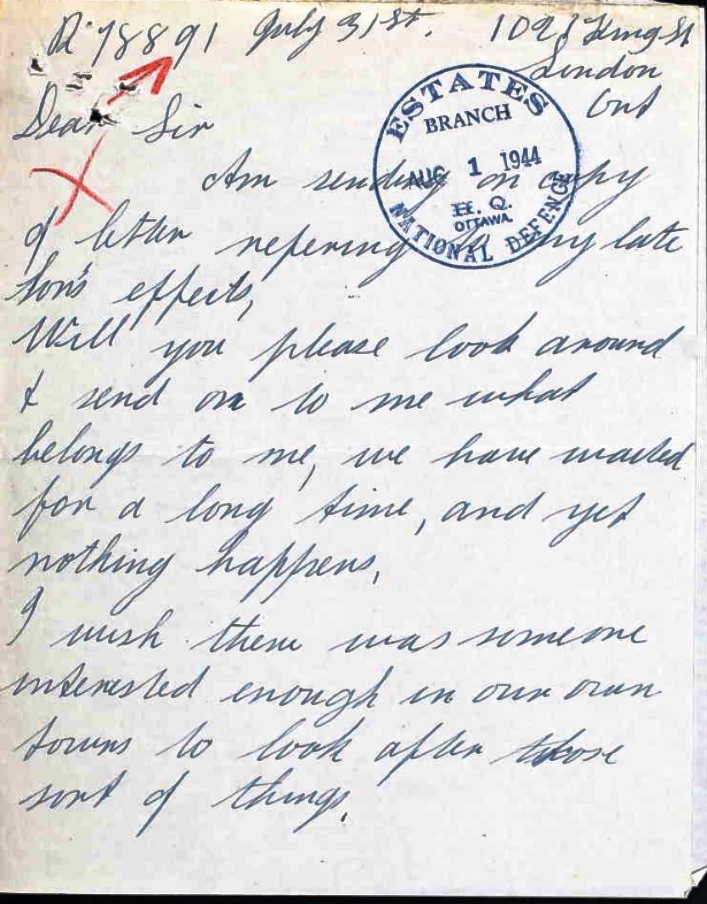 R.78891 July 31st. 1091 King St
London
Ont
Dear Sir
ESTATES
BRANCH
AUG 1 1944
H. Q.
OTTAWA
NATIONAL DEFENCE
Am sending on copy
of letter refering to my late
son's effects,
Will you please look around
& send on to me what
belongs to me, we have waited
for a long time, and yet
nothing happens,
I wish there was someone
interested enough in our own
towns to look after those
sort of things.